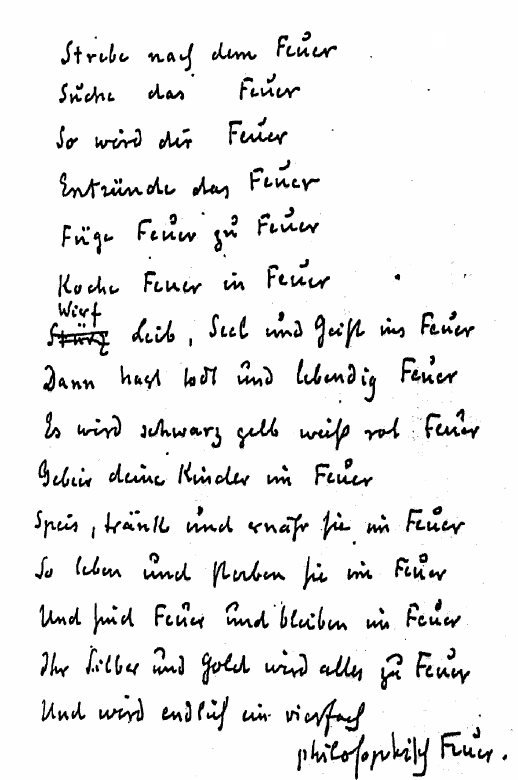 Strebe nach dem Feuer
Suche das Feuer
So wird dir Feuer
Entzünde das Feuer
Füge Feuer zu Feuer
Koche Feuer in Feuer
Wirf
Stürz Leib, Seel und Geist ins Feuer
Dann hast todt und lebendig Feuer
Es wird schwarz gelb weiß rot Feuer
Gebeir deine Kinder im Feuer
Speis, tränk und ernähr sie im Feuer
So leben und sterben sie im Feuer
Und sind Feuer und bleiben im Feuer
Ihr Silber und Gold wird alles zu Feuer
Und wird endlich ein vierfach
philosophisch Feuer.